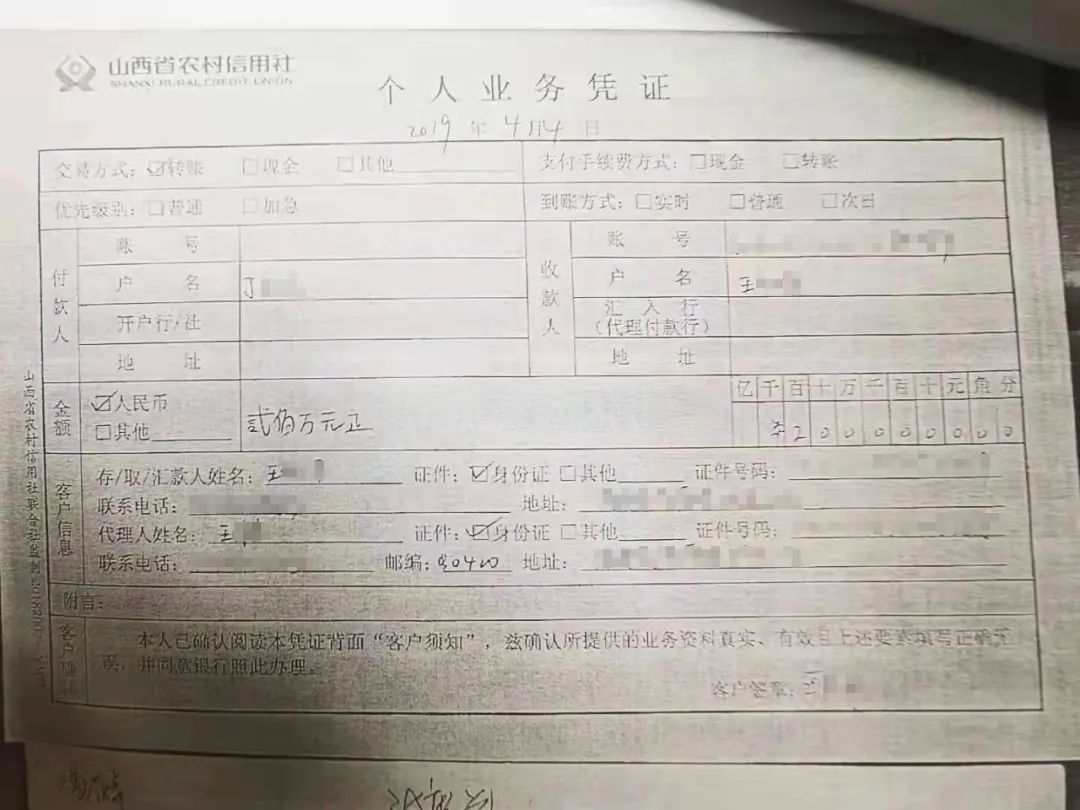 山西省农村信用社
SHANXI RURAL CREDIT UNION
个人业务凭证
2019年4月4日
交易方式：☑转账 □现金 □其他
支付手续费方式：□现金 □转账
优先级别：□普通 □加急
到账方式：□实时 □普通 □次日
付款人
账号
户名
开户行/社
地址
收款人
账号
户名 王
汇入行
（代理付款行）
地址
金额
☑人民币
□其他
贰佰万元正
亿千百十万千百十元角分
2 0 0 0 0 0 0 0 0
客户信息
存/取/汇款人姓名：王 证件：☑身份证 □其他 证件号码：
联系电话： 地址：
代理人姓名：王 证件：☑身份证 □其他 证件号码：
联系电话： 邮编： 地址：
附言：
客户确认
本人已确认阅读本凭证背面“客户须知”，兹确认所提供的业务资料真实、有效且上述要素填写正确无
误，并同意银行照此办理。
客户签章：
山西省农村信用社联合社监制